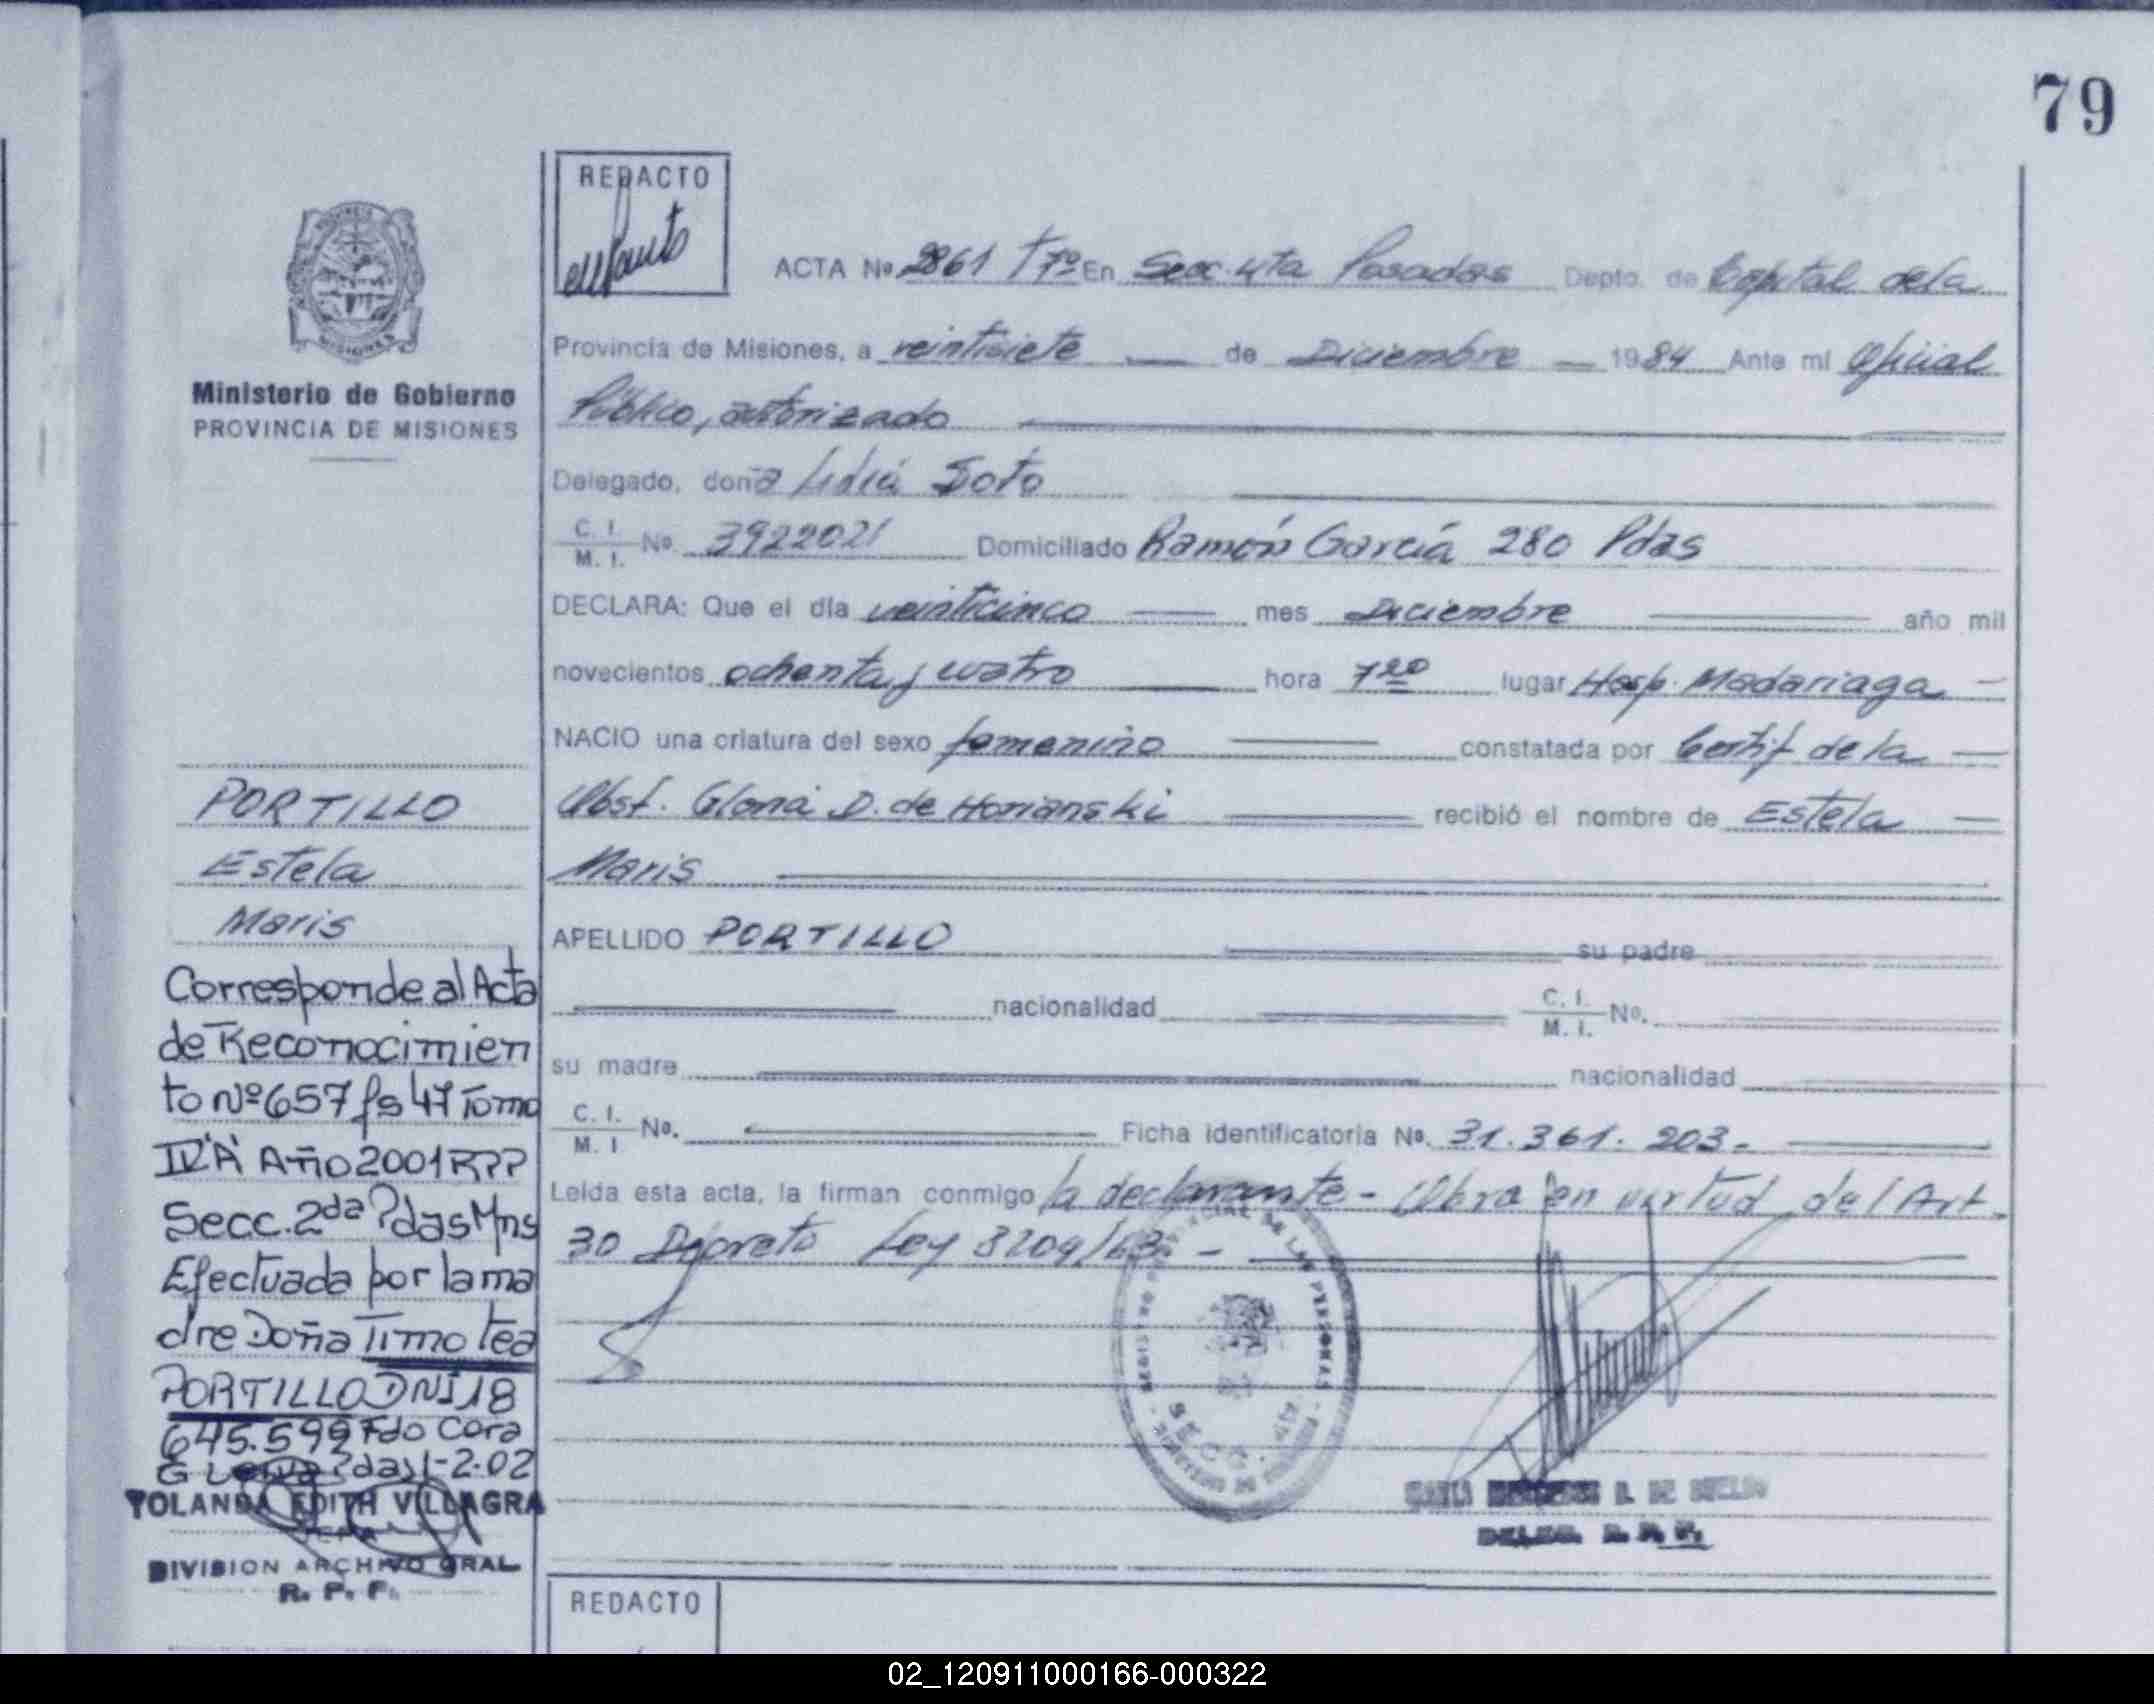 79
REDACTO
ACTA No 2861 Tº7º En Secc. 4ta Posadas Depto. de Capital de la
Provincia de Misiones, a veintisiete de Diciembre 1984 Ante mí Oficial
Público, autorizado
Delegado, doña Lidia Soto
C. I. / M. I. No. 3922021 Domiciliado Ramón García 280 Pdas
DECLARA: Que el día veinticinco mes Diciembre año mil
novecientos ochenta y cuatro hora 7 20 lugar Hosp. Madariaga
NACIO una criatura del sexo femenino constatada por Certif de la
Obst. Gloria D. de Horianski recibió el nombre de Estela
Maris
APELLIDO PORTILLO su padre
nacionalidad C. I. / M. I. No.
su madre nacionalidad
C. I. / M. I No. Ficha identificatoria No. 31.361.203.-
Leída esta acta, la firman conmigo la declarante - Obra en virtud del Art.
30 Decreto Ley 8204/63. -
Ministerio de Gobierno
PROVINCIA DE MISIONES
PORTILLO
Estela
Maris
Corresponde al Acta
de Reconocimien
to Nº 657 fs 47 Tomo
IV"A" Año 2001 RPP
Secc. 2da Pdas Mns
Efectuada por la ma
dre Doña Timotea
PORTILLO DNI 18
645.599 Fdo Cora
G Pdas 1-2-02
YOLANDA EDITH VILLAGRA
DIVISION ARCHIVO GRAL
R. P. P.
REDACTO
02_120911000166-000322